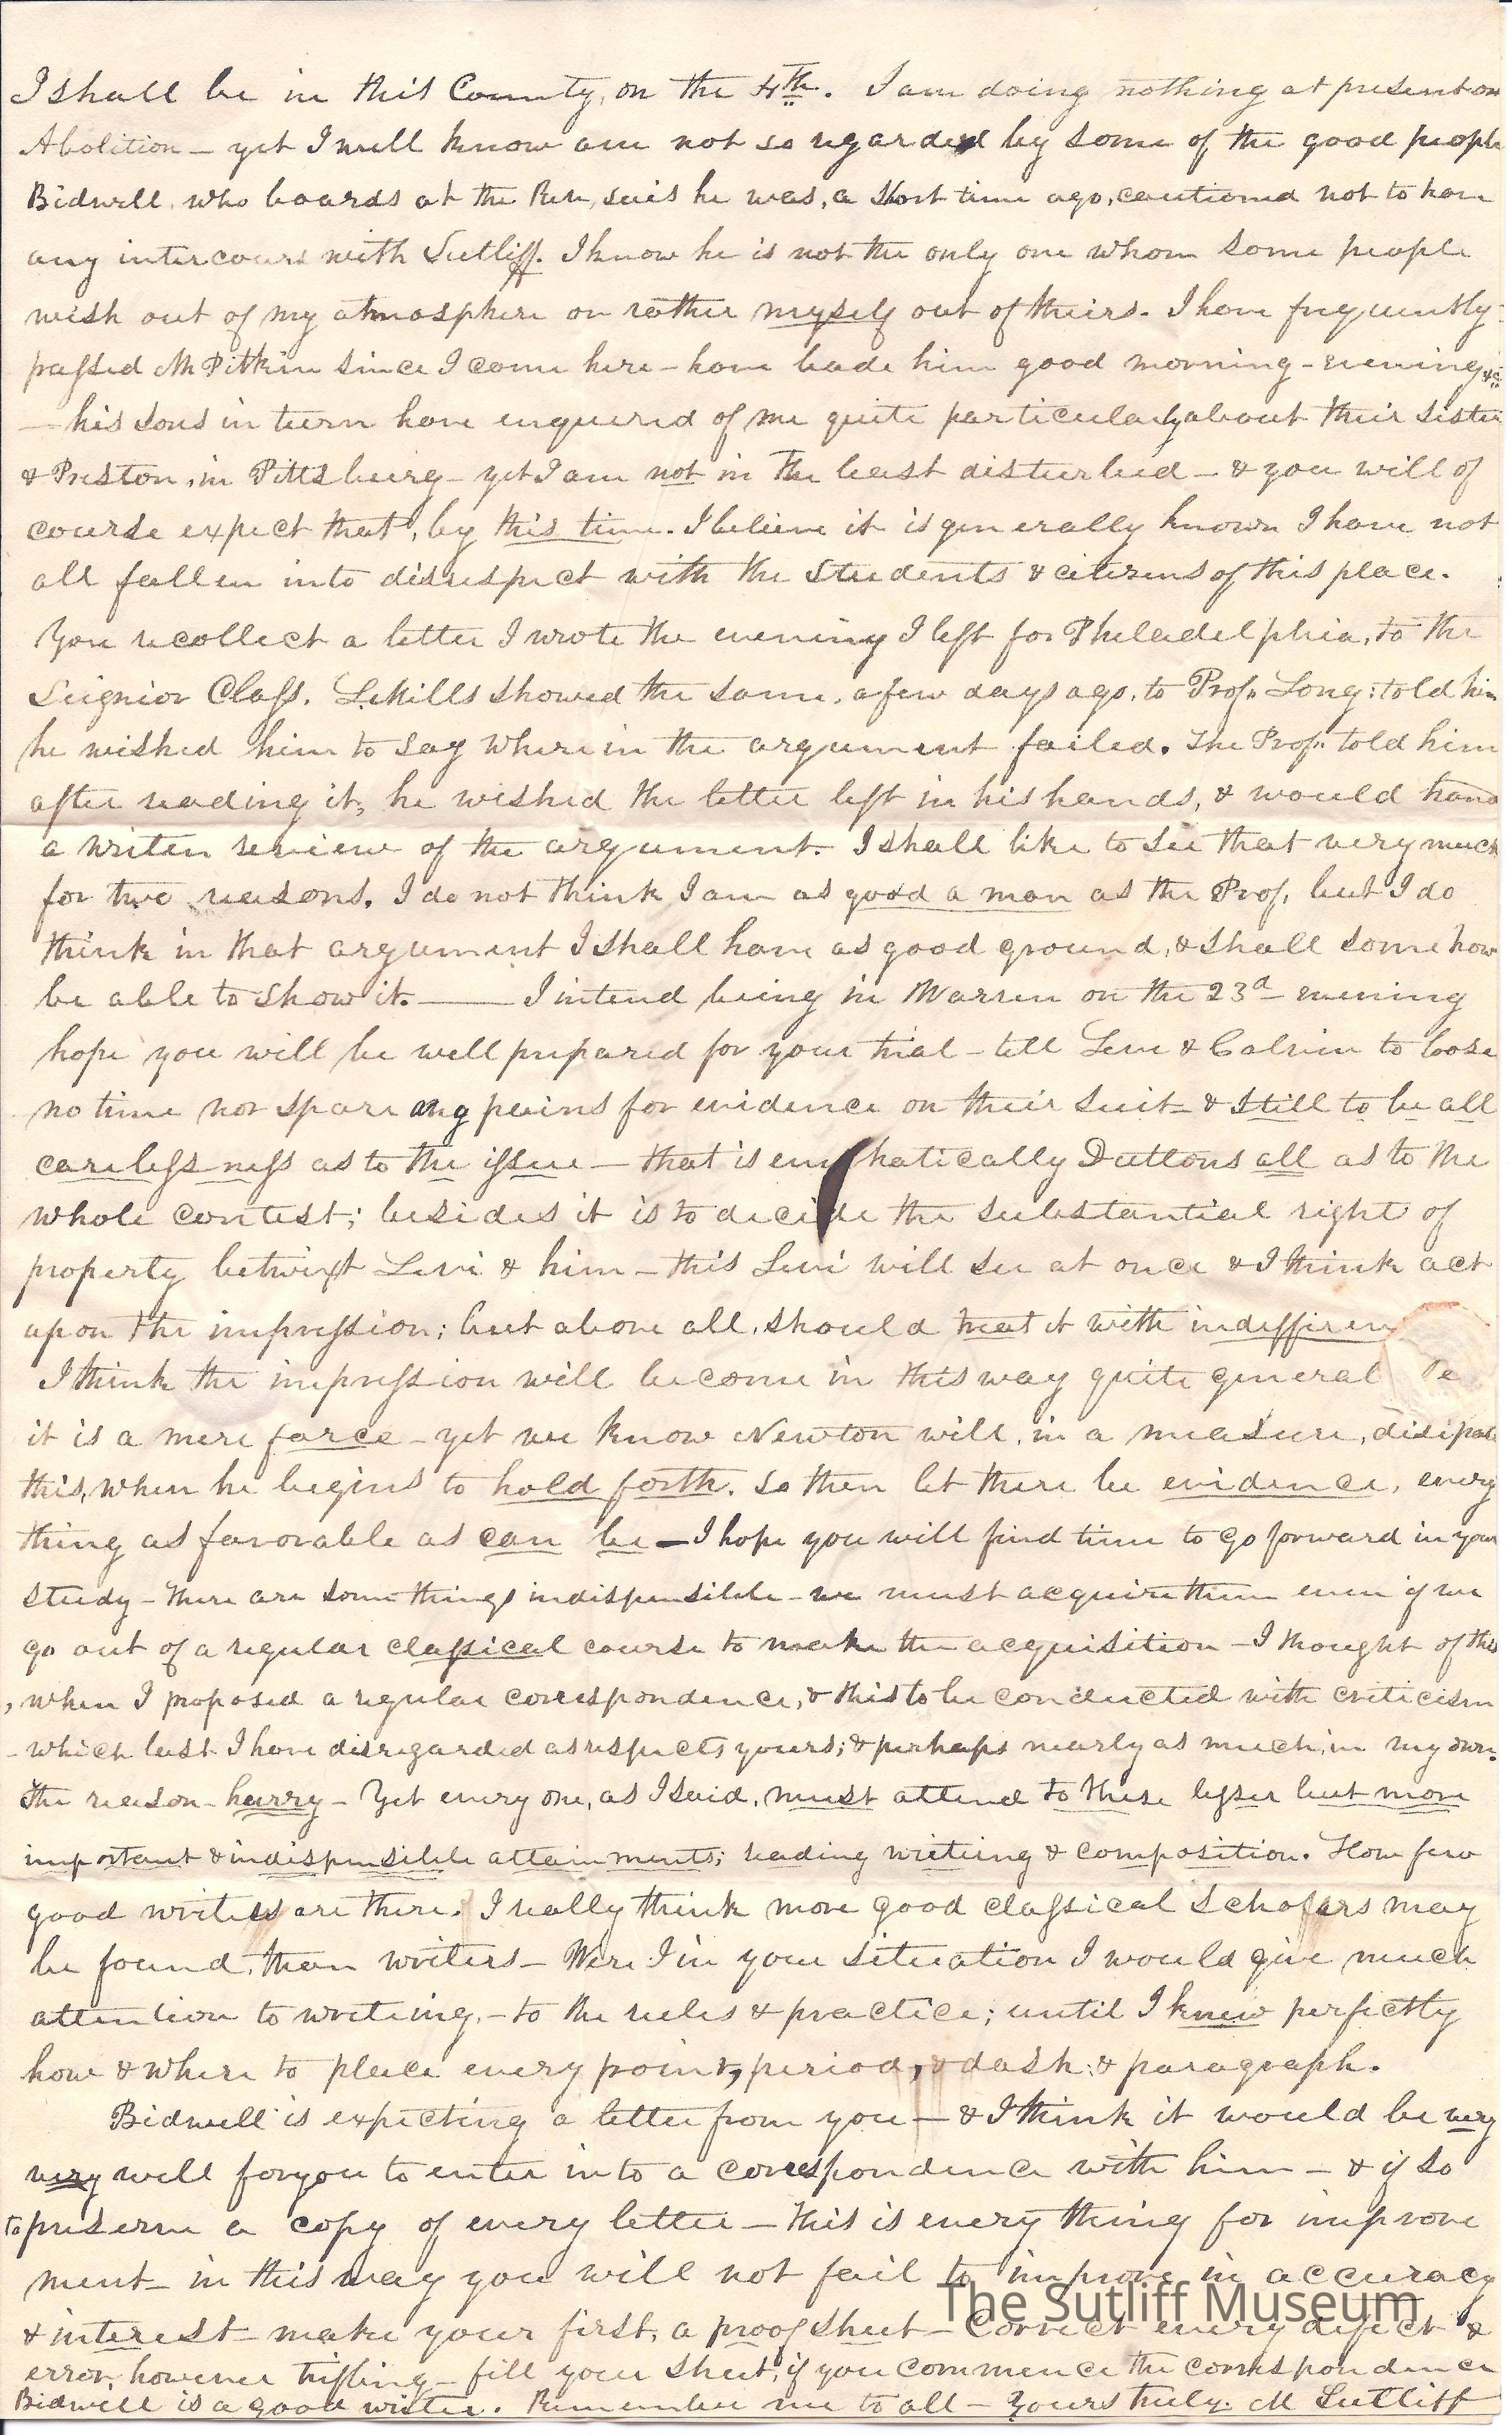 I shall be in this County, on the 4th. I am doing nothing at present on
Abolition – yet I well know am not so regarded by some of the good people
Bidwell, who boards at the sais he was, a short time ago, cautioned not to have
any intercours with Sutliff. I know he is not the only one whom some people
wish out of my atmosphere or rather myself out of theirs. I have frequently
passed M Pitkin since I come here – have bade him good morning – evening &c
– his sons in turn have enquered of me quite particularly about their sister
& Preston, in Pittsburg – yet I am not in the least disturbed – & you will of
course expect that, by this time. I believe it is generally known I have not
all fallen into disrespect with the Students & citizens of this place.
You recollect a letter I wrote the evening I left for Philadelphia, to the
Seignior Class. L. Mills showed the same, a few days ago, to Prof. Long; told him
he wished him to say wherein the argument failed. The Prof. told him
after reading it, he wished the letter left in his hands, & would hand
a writen review of the argument. I shall like to see that very much
for two reasons. I do not think I am as good a man as the Prof. but I do
think in that argument I shall have as good ground, & shall some how
be able to show it. — I intend being in Warren on the 23d – evening
hope you will be well prepared for your trial – tell Levi & Calvin to loose
no time nor spare any pains for evidence on their suit – & still to be all
carelessness as to the issue – that is emphatically Duttons all as to the
whole contest; besides it is to decide the substantial right of
property betwixt Levi & him – this Levi will see at once & I think act
upon the impression; but above all, should treat it with indifferen
I think the impression will become in this way quite general
it is a mere farce – yet we know Newton will, in a measure, disipate
this, when he begins to hold forth. So then let there be evidence, every
thing as favorable as can be – I hope you will find time to go forward in your
study – there are some things indispensible – we must acquire them even if we
go out of a regular classical course to make the acquisition – I thought of this
, when I proposed a regular correspondence, & this to be conducted with criticism
– which last I have disregarded as respects yours; & perhaps nearly as much, in my own.
The reason – hurry – Yet every one, as I said, must attend to these lesser but more
important & indispensible attainments; reading writing & composition. How few
good writers are there. I really think more good classical scholars may
be found, than writers – Were I in your situation I would give much
attention to writeing, – to the rules & practice; until I knew perfectly
how & where to place every point, period, & dash, & paragraph.
Bidwell is expecting a letter from you – & I think it would be very
very well for you to enter into a correspondence with him – & if so
to preserve a copy of every letter – this is every thing for improve
ment – in this way you will not fail to improve in accuracy
The Sutliff Museum
& interest – make your first, a proof sheet – Correct every defect &
error, however trifling – fill your sheet, if you commence the correspondence
Bidwell is a good writer. Remember me to all – Yours truly. M Sutliff